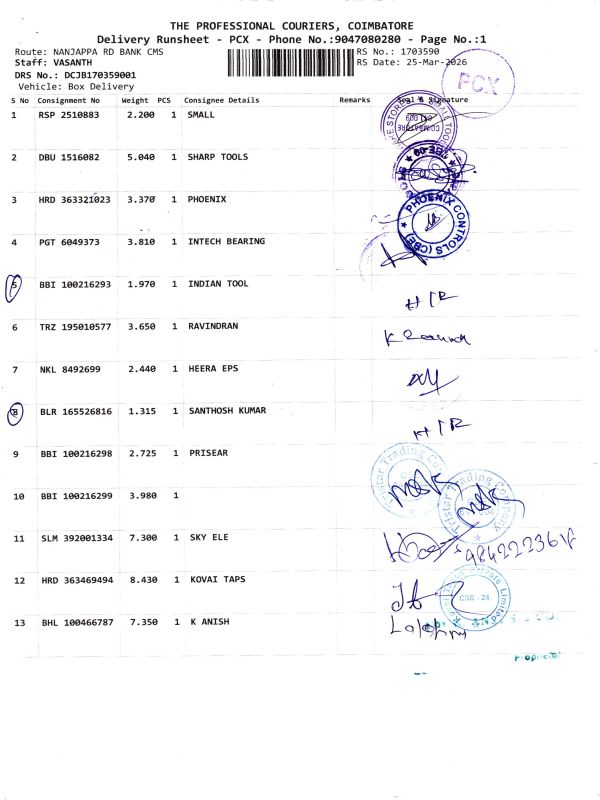 THE PROFESSIONAL COURIERS, COIMBATORE
Delivery Runsheet - PCX - Phone No.:9047080280 - Page No.:1
Route: NANJAPPA RD BANK CMS RS No.: 1703590
Staff: VASANTH RS Date: 25-Mar-2026
DRS No.: DCJB170359001
Vehicle: Box Delivery
PCX
S No Consignment No Weight PCS Consignee Details Remarks Seal & Signature
1 RSP 2510883 2.200 1 SMALL
2 DBU 1516082 5.040 1 SHARP TOOLS
3 HRD 363321023 3.370 1 PHOENIX
PHOENIX CONTROLS (CBE)
4 PGT 6049373 3.810 1 INTECH BEARING
5 BBI 100216293 1.970 1 INDIAN TOOL
H/R
6 TRZ 195010577 3.650 1 RAVINDRAN
7 NKL 8492699 2.440 1 HEERA EPS
8 BLR 165526816 1.315 1 SANTHOSH KUMAR
H/R
9 BBI 100216298 2.725 1 PRISEAR
Tristar Trading Co
10 BBI 100216299 3.980 1
Tristar Trading Company
11 SLM 392001334 7.300 1 SKY ELE
12 HRD 363469494 8.430 1 KOVAI TAPS
CBE-24
13 BHL 100466787 7.350 1 K ANISH
Proprietor